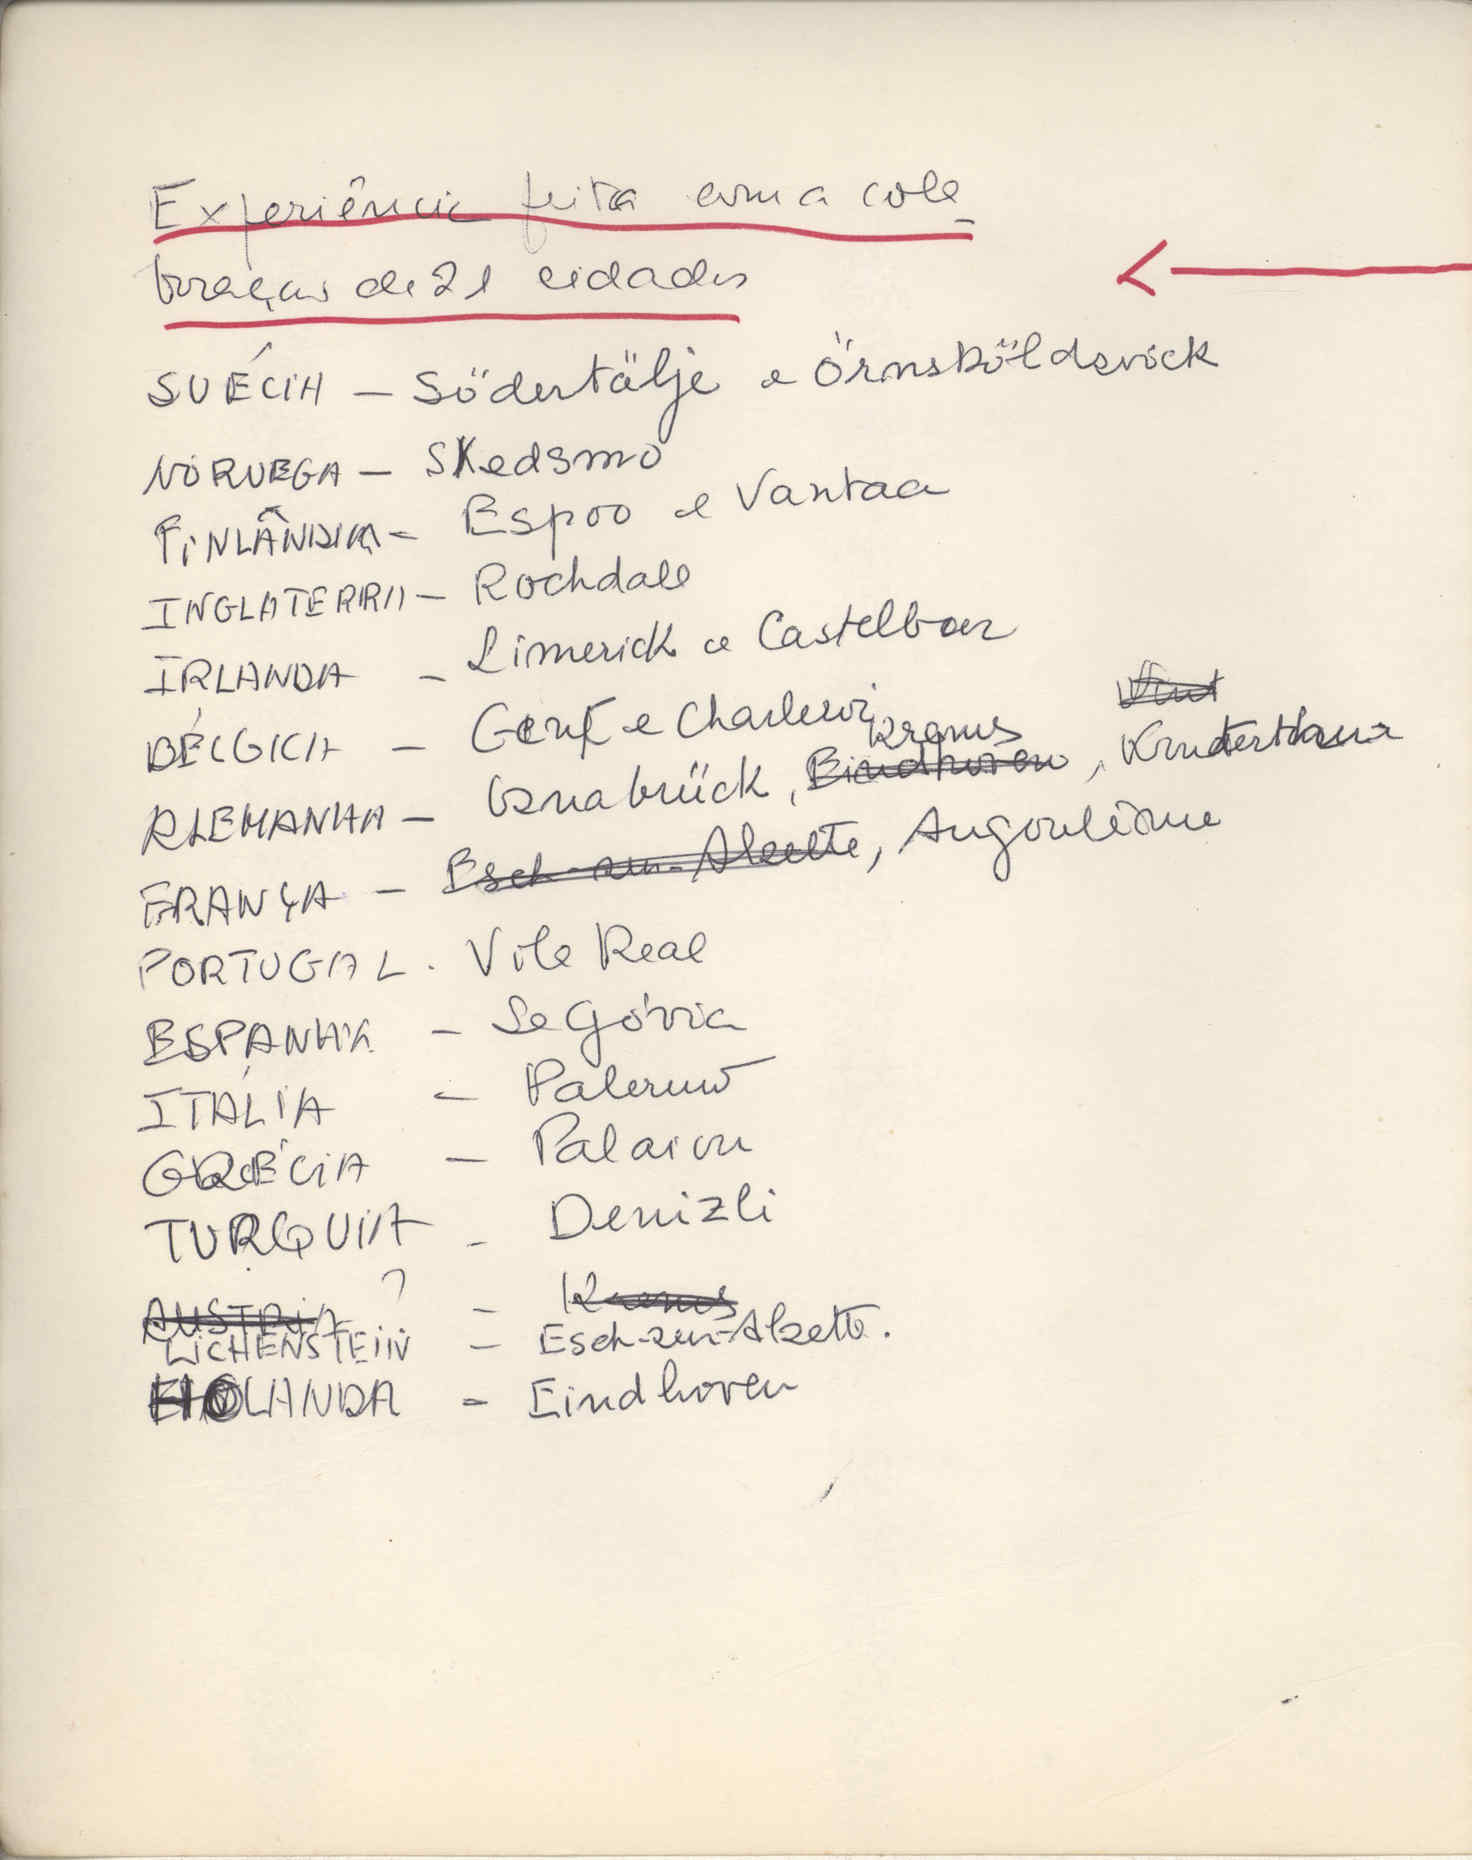 Experiência feita com a cola_
boração de 21 cidades
SUÉCIA – Södertälje e Örnsköldsvick
NORUEGA – Skedsmo
FINLÂNDIA – Espoo e Vantaa
INGLATERRA – Rochdale
IRLANDA – Limerick e Castelbar
BÉLGICA – Genk e Charleroi
Krems
ALEMANHA – Osnabrück, Eindhoven,
FRANÇA – Esch-zur-Alzette, Angoulème
PORTUGAL. Vila Real
ESPANHA – Segóvia
ITÁLIA – Palermo
GRÉCIA – Palaion
TURQUIA – Denizli
AUSTRIA ? – Krems
LICHENSTEIN – Esch-zur-Alzette.
HOLANDA – Eindhoven